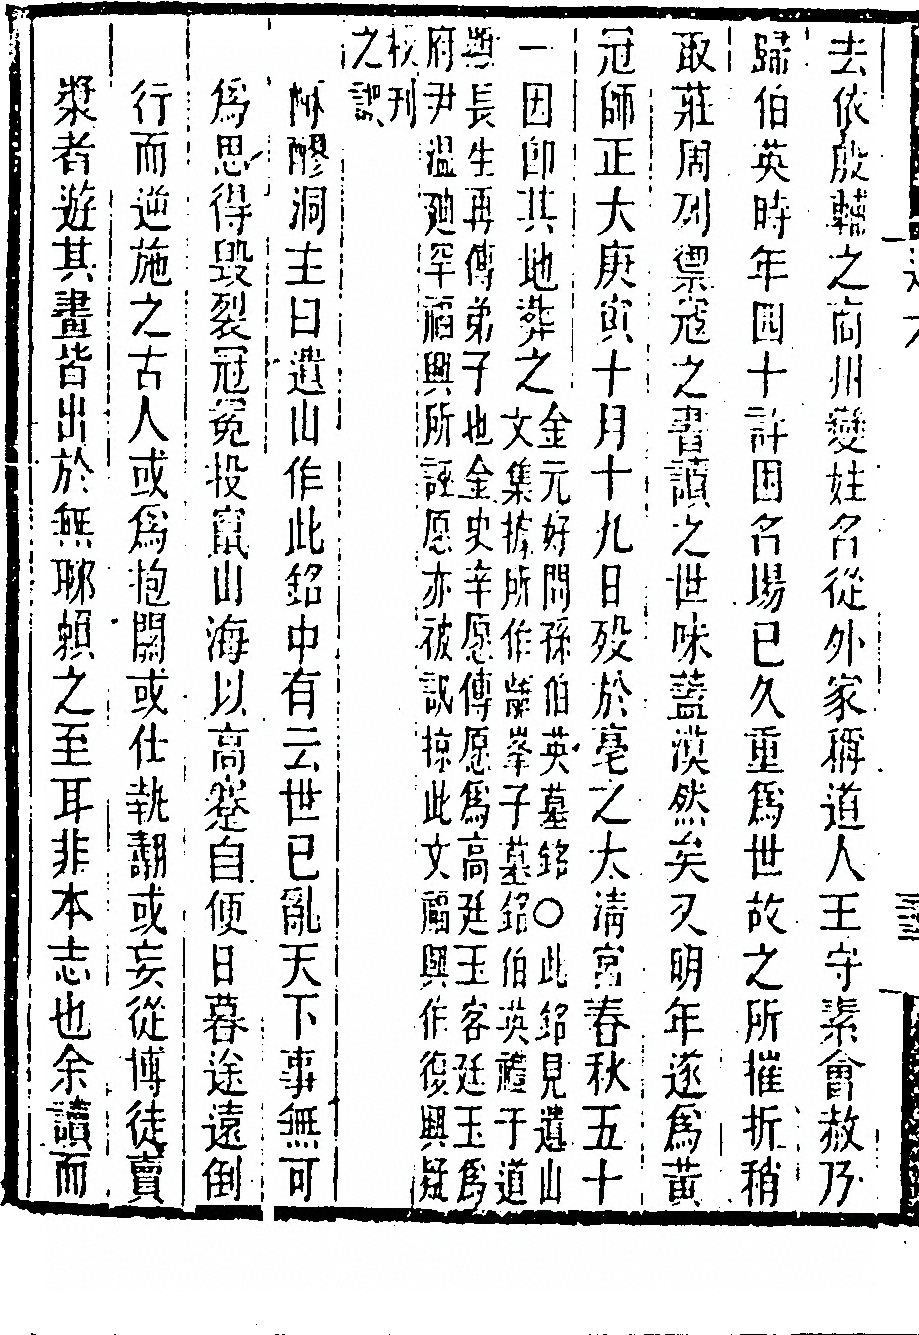 去依殷輔之商州變姓名從外家稱道人王守素會赦乃
歸伯英時年四十許困名場已久重爲世故之所摧折稍
取莊周列禦寇之書讀之世味蓋漠然矣又明年遂爲黃
冠師正大庚寅十月十九日歿於亳之太清宮春秋五十
一因即其地葬之金元好問孫伯英墓銘〇此銘見遺山
文集據所作離峯子墓銘伯英禮于道
顯長生再傳弟子也金史辛愿傳愿爲高廷玉客廷玉爲
府尹溫廸罕福興所誣愿亦被訊掠此文福興作復興疑
校刋
之訛
酥醪洞主曰遺山作此銘中有云世已亂天下事無可
爲思得毀裂冠冕投竄山海以高蹇自便日暮途遠倒
行而逆施之古人或爲抱關或仕執翿或妄從博徒賣
漿者遊其畫皆出於無聊賴之至耳非本志也余讀而